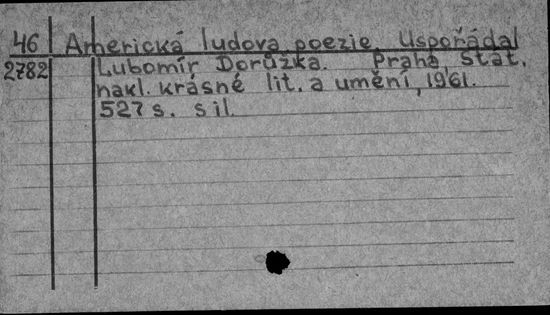 46 Americká ludova poezie. Uspořádal
2782 Lubomír Dorůžka. Praha, stát.
nakl. krásné lit. a umění, 1961.
527 s. s il.